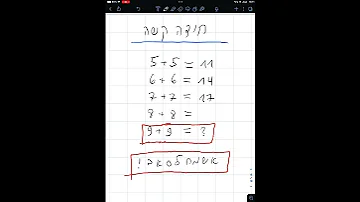 חידה קשה
5+5 = 11
6+6 = 14
7+7 = 17
8+8 =
9+9 = ?